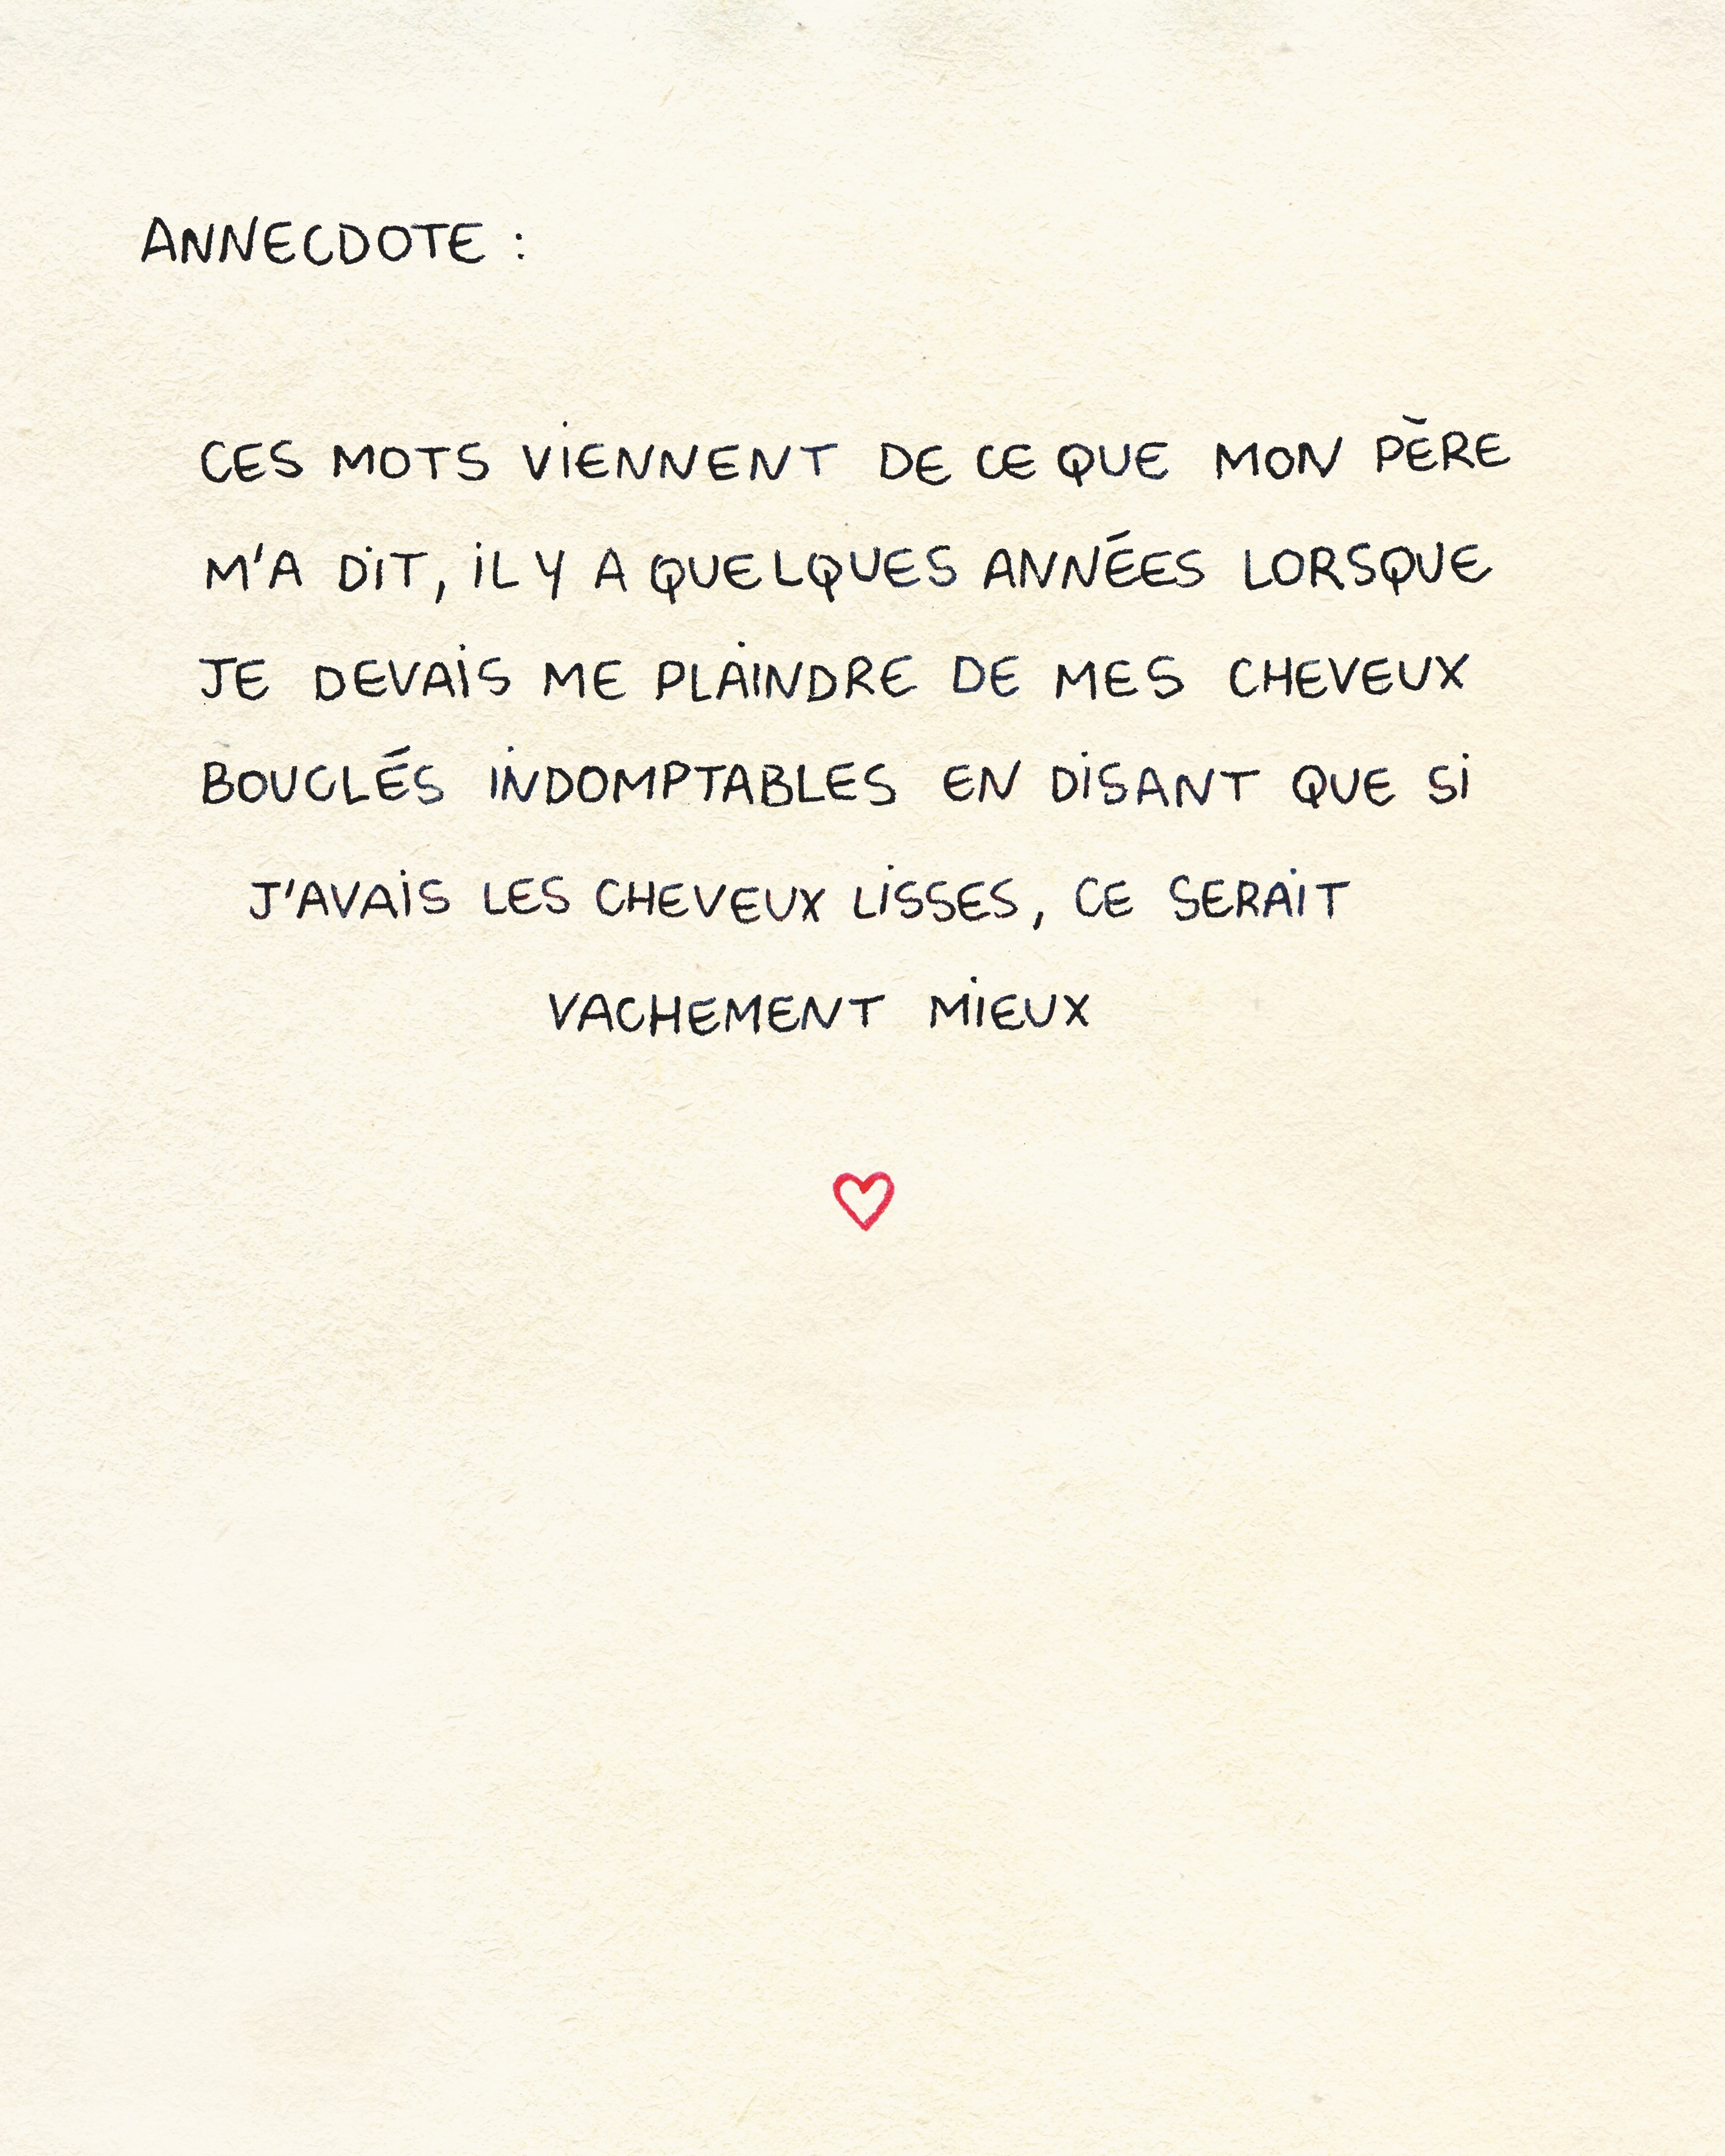 ANNECDOTE :
CES MOTS VIENNENT DE CE QUE MON PÈRE
M'A DIT, IL Y A QUELQUES ANNÉES LORSQUE
JE DEVAIS ME PLAINDRE DE MES CHEVEUX
BOUCLÉS INDOMPTABLES EN DISANT QUE SI
J'AVAIS LES CHEVEUX LISSES, CE SERAIT
VACHEMENT MIEUX